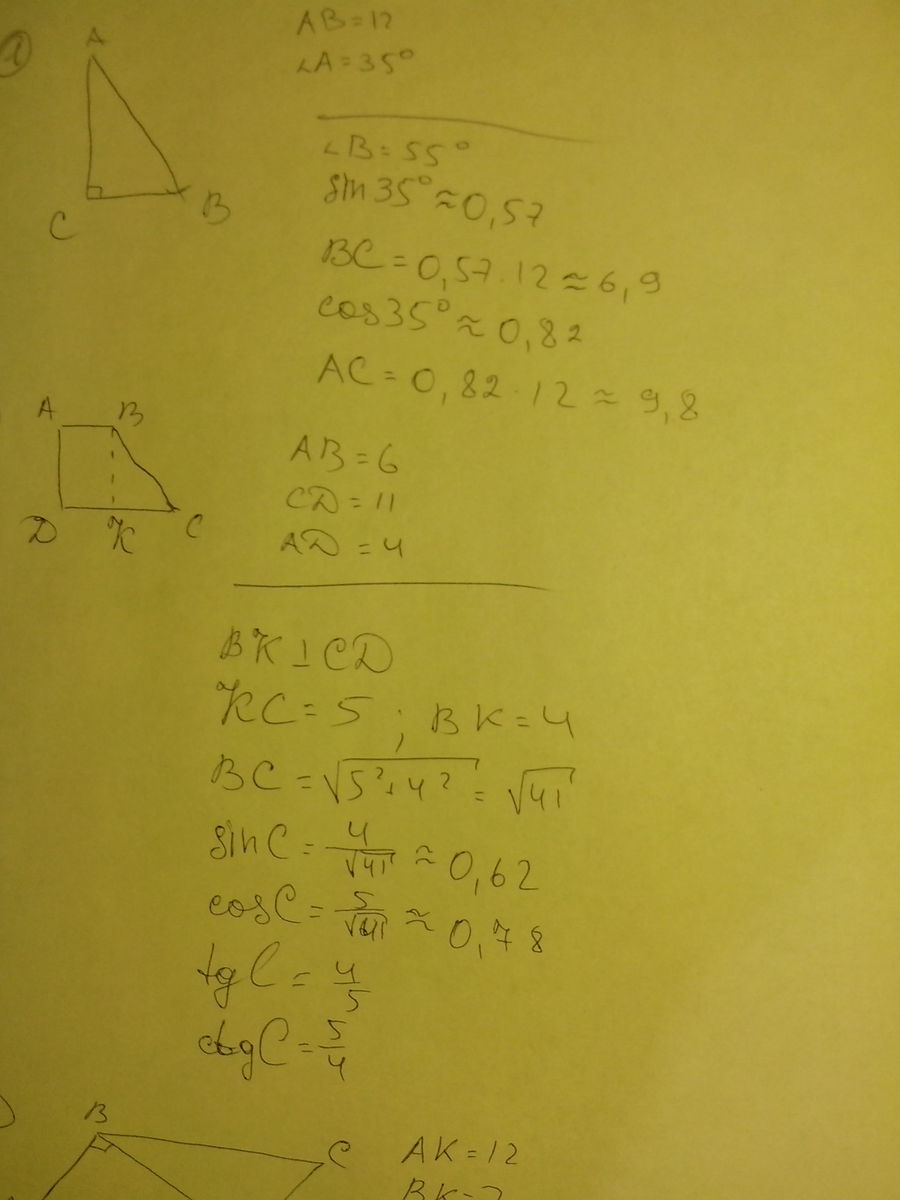 1
A
C
B
AB=12
∠A=35°
∠B=55°
sin35°≈0,57
BC=0,57·12≈6,9
cos35°≈0,82
AC=0,82·12≈9,8
A B
D K C
AB=6
CD=11
AD=4
BK⊥CD
KC=5; BK=4
BC=√5²+4²=√41
sinC=4/√41≈0,62
cosC=5/√41≈0,78
tgC=4/5
ctgC=5/4
B
C
AK=12